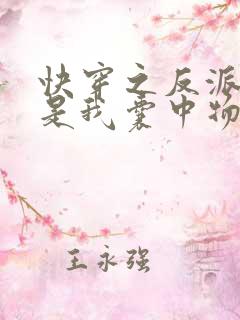 快穿之反派
是我囊中物
王永强